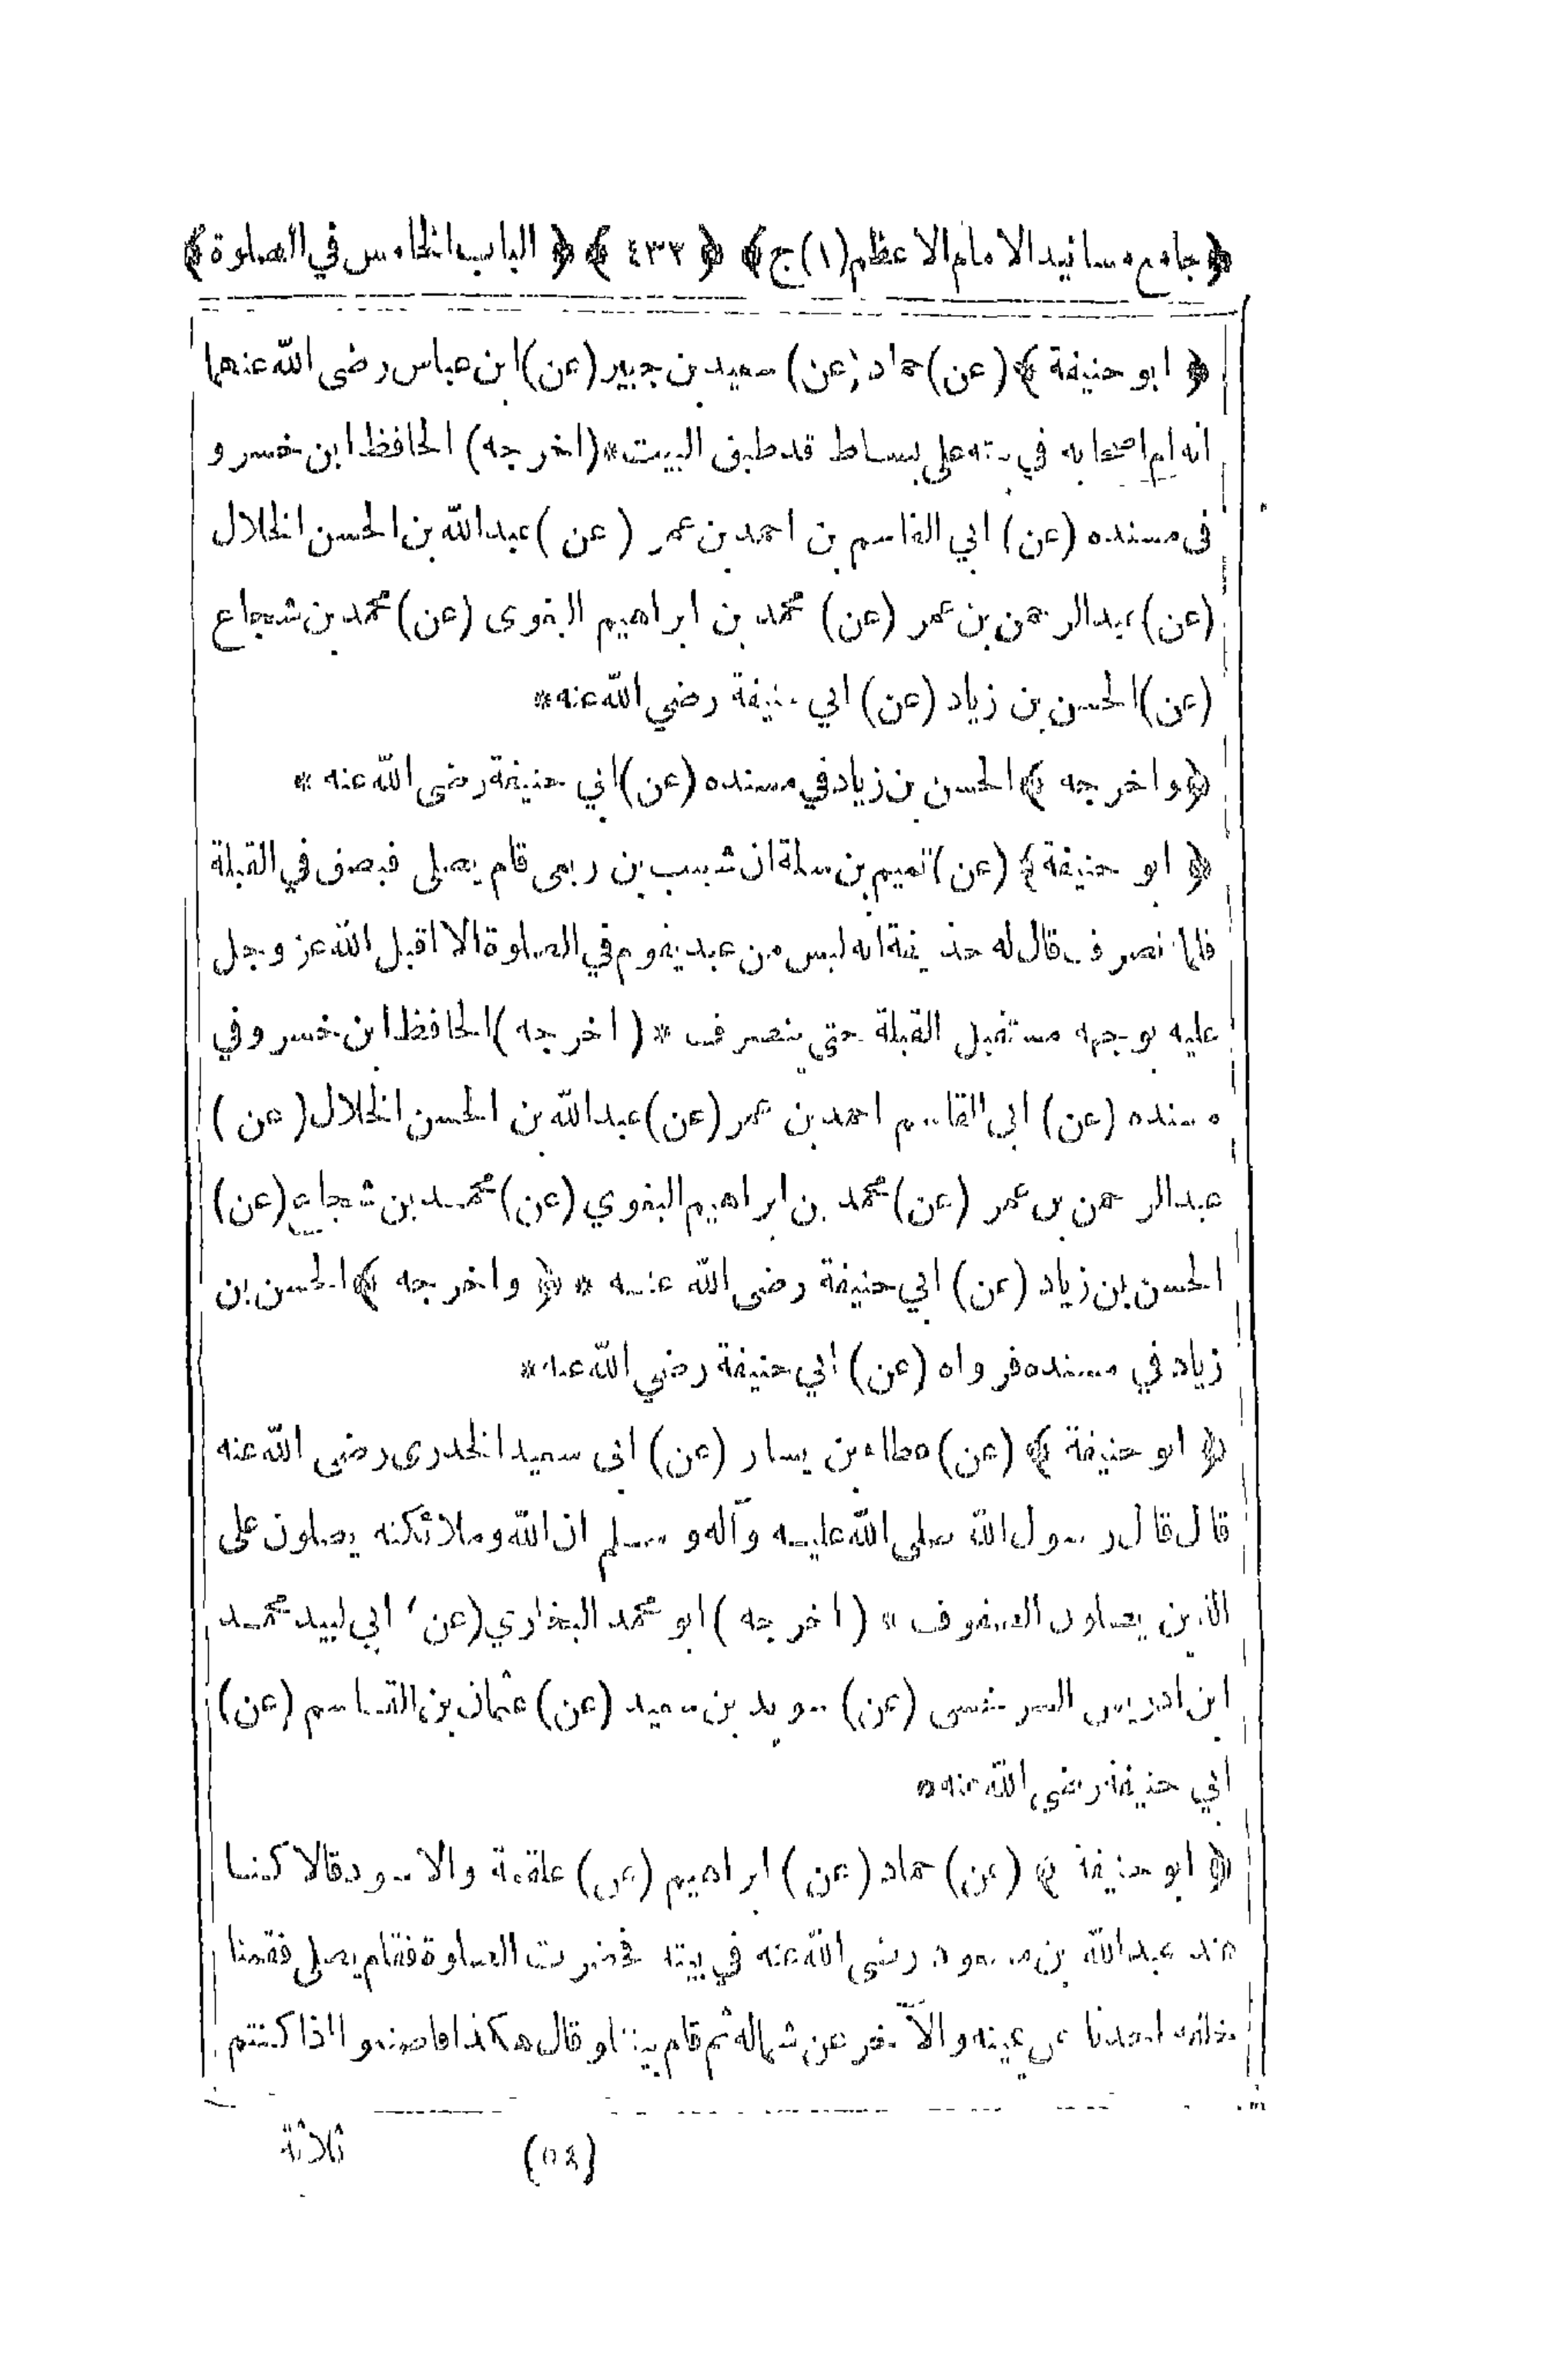 ﴿جامع مسانيد الامام الاعظم(١)ج﴾ ﴿ ٤٣٣ ﴾ ﴿ الباب الخامس في الصلوة﴾
﴿ ابو حنيفة ﴾ (عن) حماد (عن) سعيد بن جبير (عن) ابن عباس رضى الله عنهما
انه ام اصحابه في بيته على بساط قد طبق البيت * (اخرجه) الحافظ ابن خسرو
فى مسنده (عن) ابي القاسم بن احمد بن عمر (عن) عبدالله بن الحسن الخلال
(عن) عبدالرحمن بن عمر (عن) محمد بن ابراهيم البغوى (عن) محمد بن شجاع
(عن) الحسن بن زياد (عن) ابي حنيفة رضي الله عنه*
﴿واخرجه ﴾ الحسن بن زياد في مسنده (عن) ابي حنيفة رضى الله عنه *
﴿ ابو حنيفة ﴾ (عن) تميم بن سلمة ان شبيب بن ربعى قام يصلى فبصق في القبلة
فلما انصرف قال له حذيفة انه ليس من عبد يقوم في الصلوة الا اقبل الله عز وجل
عليه بوجهه مستقبل القبلة حتى ينصرف * (اخرجه) الحافظ ابن خسرو في
مسنده (عن) ابى القاسم احمد بن عمر (عن) عبدالله بن الحسن الخلال (عن)
عبدالرحمن بن عمر (عن) محمد بن ابراهيم البغوي (عن) محمد بن شجاع (عن)
الحسن بن زياد (عن) ابي حنيفة رضى الله عنه * ﴿ واخرجه ﴾ الحسن بن
زياد في مسنده فرواه (عن) ابي حنيفة رضي الله عنه *
﴿ ابو حنيفة ﴾ (عن) عطاء بن يسار (عن) ابى سعيد الخدرى رضى الله عنه
قال قال رسول الله صلى الله عليه وآله وسلم ان الله وملائكته يصلون على
الذين يصلون الصفوف * (اخرجه) ابو محمد البخاري (عن) ابي لبيد محمد
ابن ادريس السرخسى (عن) سويد بن سعيد (عن) عثمان بن القاسم (عن)
ابي حنيفة رضي الله عنه*
﴿ ابو حنيفة ﴾ (عن) حماد (عن) ابراهيم (عن) علقمة والاسود قالا كنا
عند عبدالله بن مسعود رضى الله عنه في بيته فحضرت الصلوة فقام يصلى فقمنا
خلفه احدنا عن يمينه والآخر عن شماله ثم قام بيننا وقال هكذا فاصنعوا اذا كنتم
(٥٤) ثلاثة